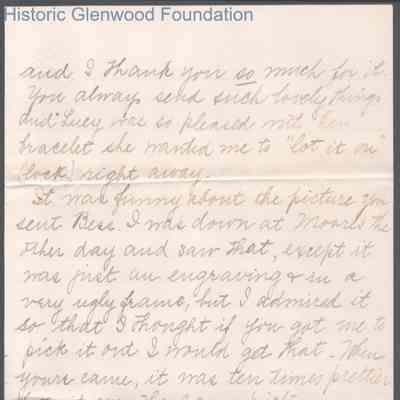 Historic Glenwood Foundation
and I thank you so much for it.
You always send such lovely things
and Lucy was so pleased with her
bracelet she wanted me to "lot it on"
(lock) right away.
It was funny about the picture you
sent Bess. I was down at Moore's the
other day and saw that, except it
was just an engraving & in a
very ugly frame, but I admired it
so that I thought if you got me to
pick it out I would get that. When
yours came, it was ten times prettier